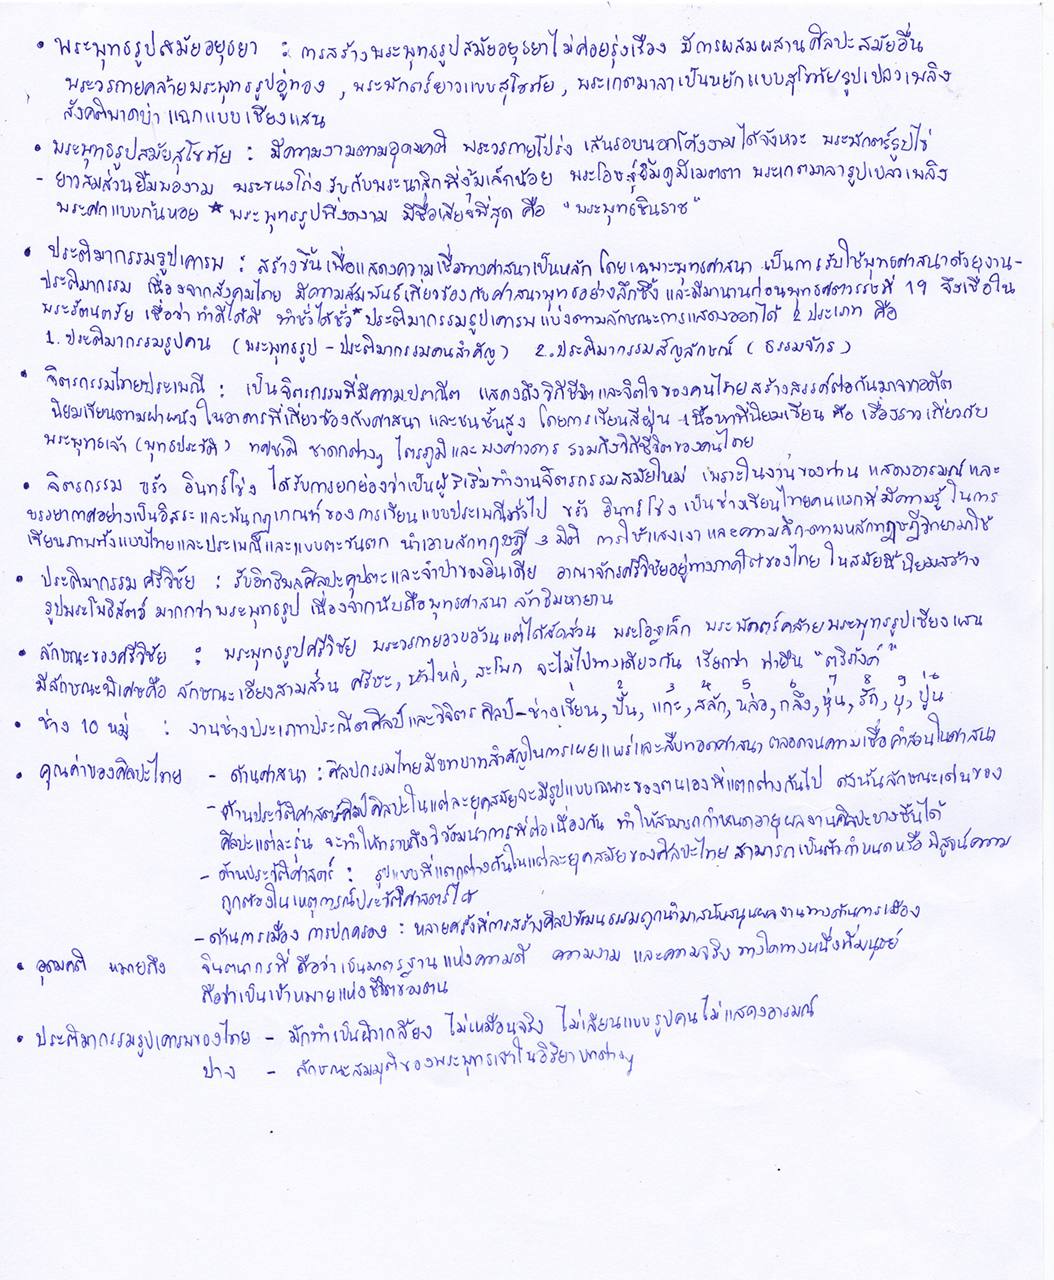 • พระพุทธรูปสมัยอยุธยา : การสร้างพระพุทธรูปสมัยอยุธยาไม่ค่อยรุ่งเรือง มีการผสมผสานศิลปะสมัยอื่น
พระวรกายคล้ายพระพุทธรูปอู่ทอง , พระพักตร์ยาวแบบสุโขทัย , พระเกตุมาลาเป็นหยักแบบสุโขทัยรูปเปลวเพลิง
สังคติพาดบ่า แฉกแบบเชียงแสน
• พระพุทธรูปสมัยสุโขทัย : มีความงามตามอุดมคติ พระวรกายโปร่ง เส้นรอบนอกโค้งงามได้จังหวะ พระพักตร์รูปไข่
- ยาวสมส่วนยิ้มพองาม พระขนงโก่ง รับกับพระนาสิกที่งุ้มเล็กน้อย พระโอษฐ์ยิ้มดูมีเมตตา พระเกตุมาลารูปเปลวเพลิง
พระศกแบบก้นหอย * พระพุทธรูปที่งดงาม มีชื่อเสียงที่สุด คือ "พระพุทธชินราช"
• ประติมากรรมรูปเคารพ : สร้างขึ้นเพื่อแสดงความเชื่อทางศาสนาเป็นหลัก โดยเฉพาะพุทธศาสนา เป็นการรับใช้พุทธศาสนาด้วยงาน-
ประติมากรรม เนื่องจากสังคมไทย มีความสัมพันธ์เกี่ยวข้องกับศาสนาพุทธอย่างลึกซึ้ง และมีมานานก่อนพุทธศตวรรษที่ 19 จึงเชื่อใน
พระรัตนตรัย เชื่อว่า ทำดีได้ดี ทำชั่วได้ชั่ว * ประติมากรรมรูปเคารพ แบ่งตามลักษณะการแสดงออกได้ 2 ประเภท คือ
1. ประติมากรรมรูปคน (พระพุทธรูป - ประติมากรรมคนสำคัญ) 2. ประติมากรรมสัญลักษณ์ (ธรรมจักร)
• จิตรกรรมไทยประเพณี : เป็นจิตรกรรมที่มีความปราณีต แสดงถึงวิถีชีวิตและจิตใจของคนไทยสร้างสรรค์ต่อกันมาจากอดีต
นิยมเขียนตามฝาผนัง ในอาคารที่เกี่ยวข้องกับศาสนา และชนชั้นสูง โดยการเขียนสีฝุ่น เนื้อหาที่นิยมเขียน คือ เรื่องราวเกี่ยวกับ
พระพุทธเจ้า (พุทธประวัติ) ทศชาติ ชาดกต่างๆ ไตรภูมิและ พงศาวดาร รวมถึงวิถีชีวิตของคนไทย
• จิตรกรรม ขรัว อินทร์โข่ง ได้รับการยกย่องว่าเป็นผู้ริเริ่มทำงานจิตรกรรมสมัยใหม่ เพราะในงานของท่าน แสดงอารมณ์และ
บรรยากาศอย่างเป็นอิสระและพ้นกฎเกณฑ์ของการเขียนแบบประเพณีทั่วไป ขรัว อินทร์โข่ง เป็นช่างเขียนไทยคนแรกที่มีความรู้ในการ
เขียนภาพทั้งแบบไทยและประเพณีและแบบตะวันตก นำเอาหลักทฤษฎี 3 มิติ การให้แสงเงาและความลึกตามหลักทฤษฎีวิทยามาใช้
• ประติมากรรม ศรีวิชัย : รับอิทธิพลศิลปะคุปตะและจำปาของอินเดีย อาณาจักรศรีวิชัยอยู่ทางภาคใต้ของไทย ในสมัยนี้นิยมสร้าง
รูปพระโพธิสัตว์ มากกว่าพระพุทธรูป เนื่องจากนับถือพุทธศาสนา ลัทธิมหายาน
• ลักษณะของศรีวิชัย : พระพุทธรูปศรีวิชัย พระวรกายอวบอ้วนแต่ได้สัดส่วน พระโอษฐ์เล็ก พระพักตร์คล้ายพระพุทธรูปเชียงแสน
มีลักษณะพิเศษคือ ลักษณะเอียงสามส่วน ศรีษะ, หัวไหล่, สะโพก จะไม่ไปทางเดียวกัน เรียกว่า ท่ายืน "ตริภังค์"
• ช่าง 10 หมู่ : งานช่างประเภทประณีตศิลป์และวิจิตรศิลป์ - ช่างเขียน, ปั้น, แกะ, สลัก, หล่อ, กลึง, หุ่น, รัก, บุ, ปูน
• คุณค่าของศิลปะไทย - ด้านศาสนา : ศิลปกรรมไทยมีบทบาทสำคัญในการเผยแพร่และสืบทอดศาสนา ตลอดจนความเชื่อ คำสอนในศาสนา
- ด้านประวัติศาสตร์ศิลป์ ศิลปะในแต่ละยุคสมัยจะมีรูปแบบเฉพาะของตนเองที่แตกต่างกันไป ดังนั้นลักษณะเด่นของ
ศิลปะแต่ละรุ่น จะทำให้ทราบถึงวิวัฒนาการที่ต่อเนื่องกัน ทำให้สามารถกำหนดอายุผลงานศิลปะบางชิ้นได้
- ด้านประวัติศาสตร์ : รูปแบบที่แตกต่างกันในแต่ละยุคสมัยของศิลปะไทย สามารถเป็นตัวกำหนดหรือ พิสูจน์ความ
ถูกต้องในเหตุการณ์ประวัติศาสตร์ได้
- ด้านการเมือง การปกครอง : หลายครั้งที่การสร้างศิลปวัฒนธรรมถูกนำมาสนับสนุนผลงานทางด้านการเมือง
• อุดมคติ หมายถึง จินตนาการที่ ถือว่าเป็นมาตรฐานแห่งความดี ความงาม และความจริง ทางใดทางหนึ่งที่มนุษย์
ถือว่าเป็นเป้าหมายแห่งชีวิตของตน
• ประติมากรรมรูปเคารพของไทย - มักทำเป็นผิวเกลี้ยง ไม่เหมือนจริง ไม่เลียนแบบรูปคน ไม่แสดงอารมณ์
ปาง - ลักษณะสมมุติของพระพุทธเจ้าในอิริยาบถต่างๆ